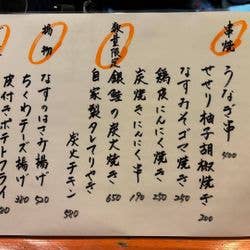 串焼
うなぎ串 400
せせり柚子胡椒焼き 200
なすみそゴマ焼き 250
鶏皮にんにく焼き 250
炭焼きにんにく串 190
数量限定
銀鮭の炭火焼き 650
自家製タレてりやき
炭火チキン 580
揚物
なすのはさみ揚げ 520
ちくわチーズ揚げ 380
皮付きポテトフライ